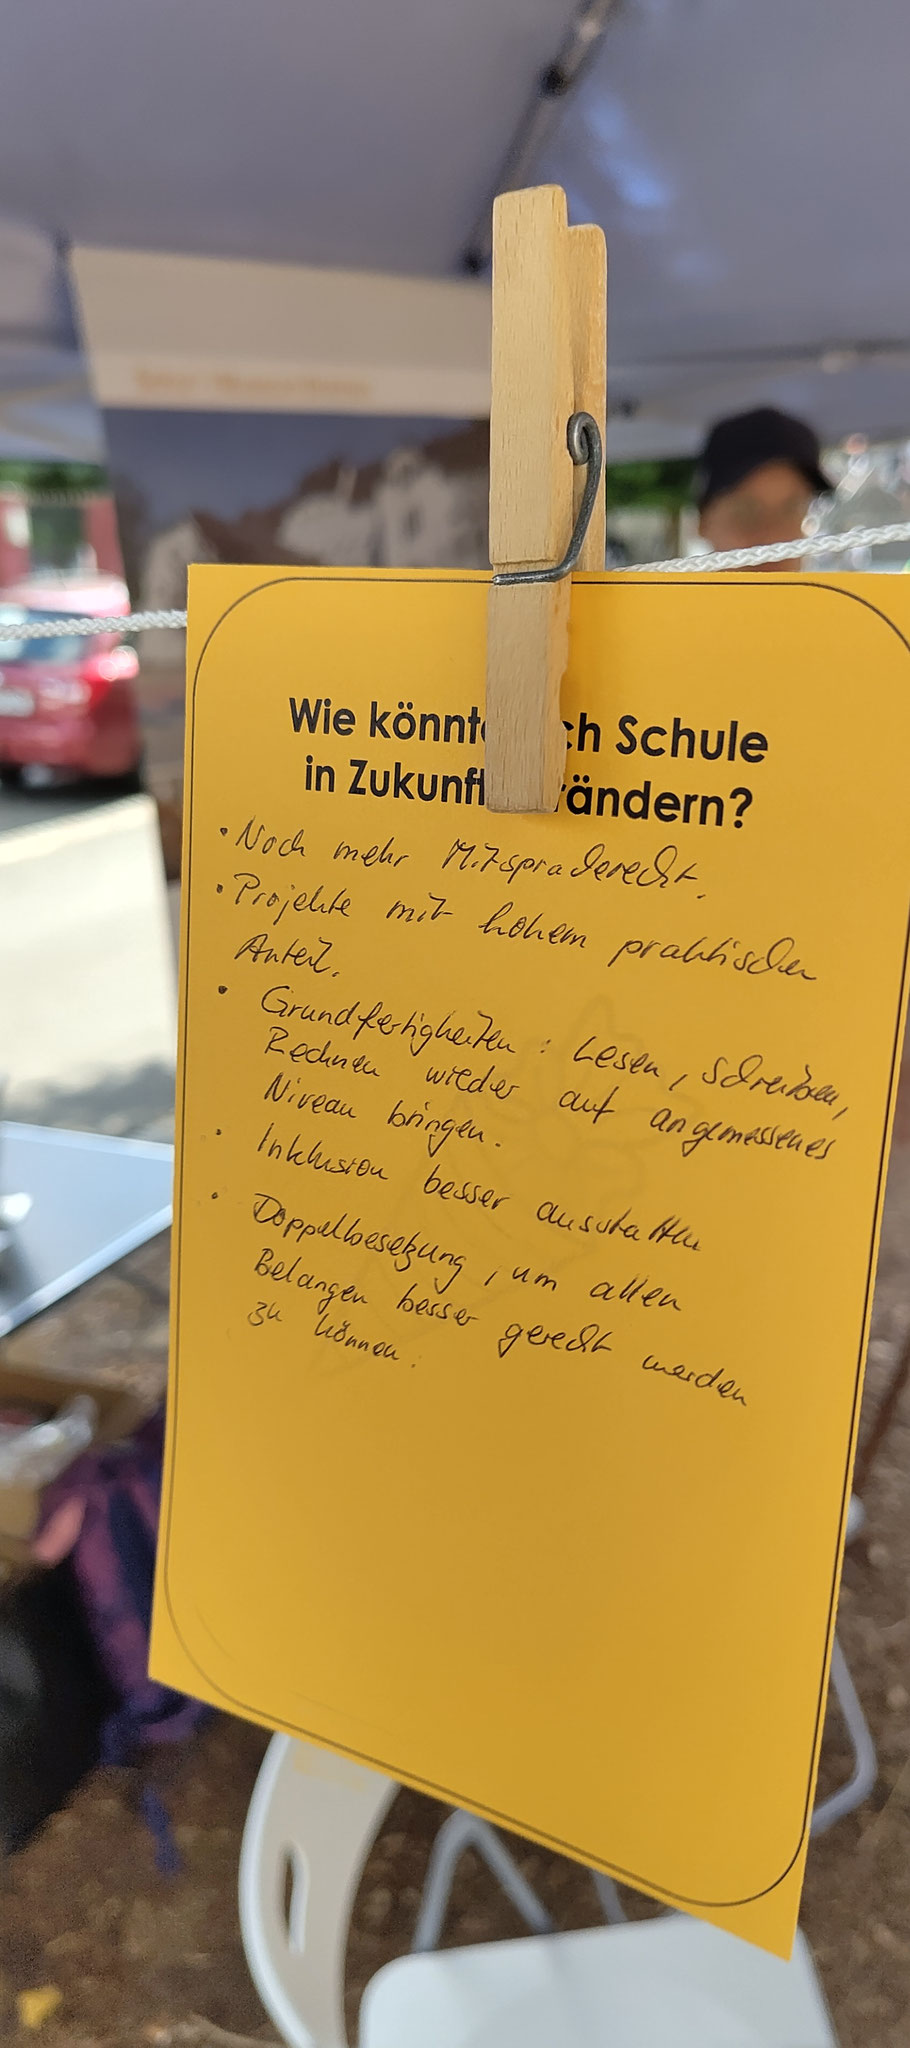 Wie könnt ch Schule
in Zukunf rändern?
• Noch mehr Mitspracherecht.
• Projekte mit hohem praktischen
Anteil.
• Grundfertigkeiten: Lesen, Schreiben,
Rechnen wieder auf angemessenes
Niveau bringen.
• Inklusion besser ausstatten
• Doppelbesetzung, um allen
Belangen besser gerecht werden
zu können.